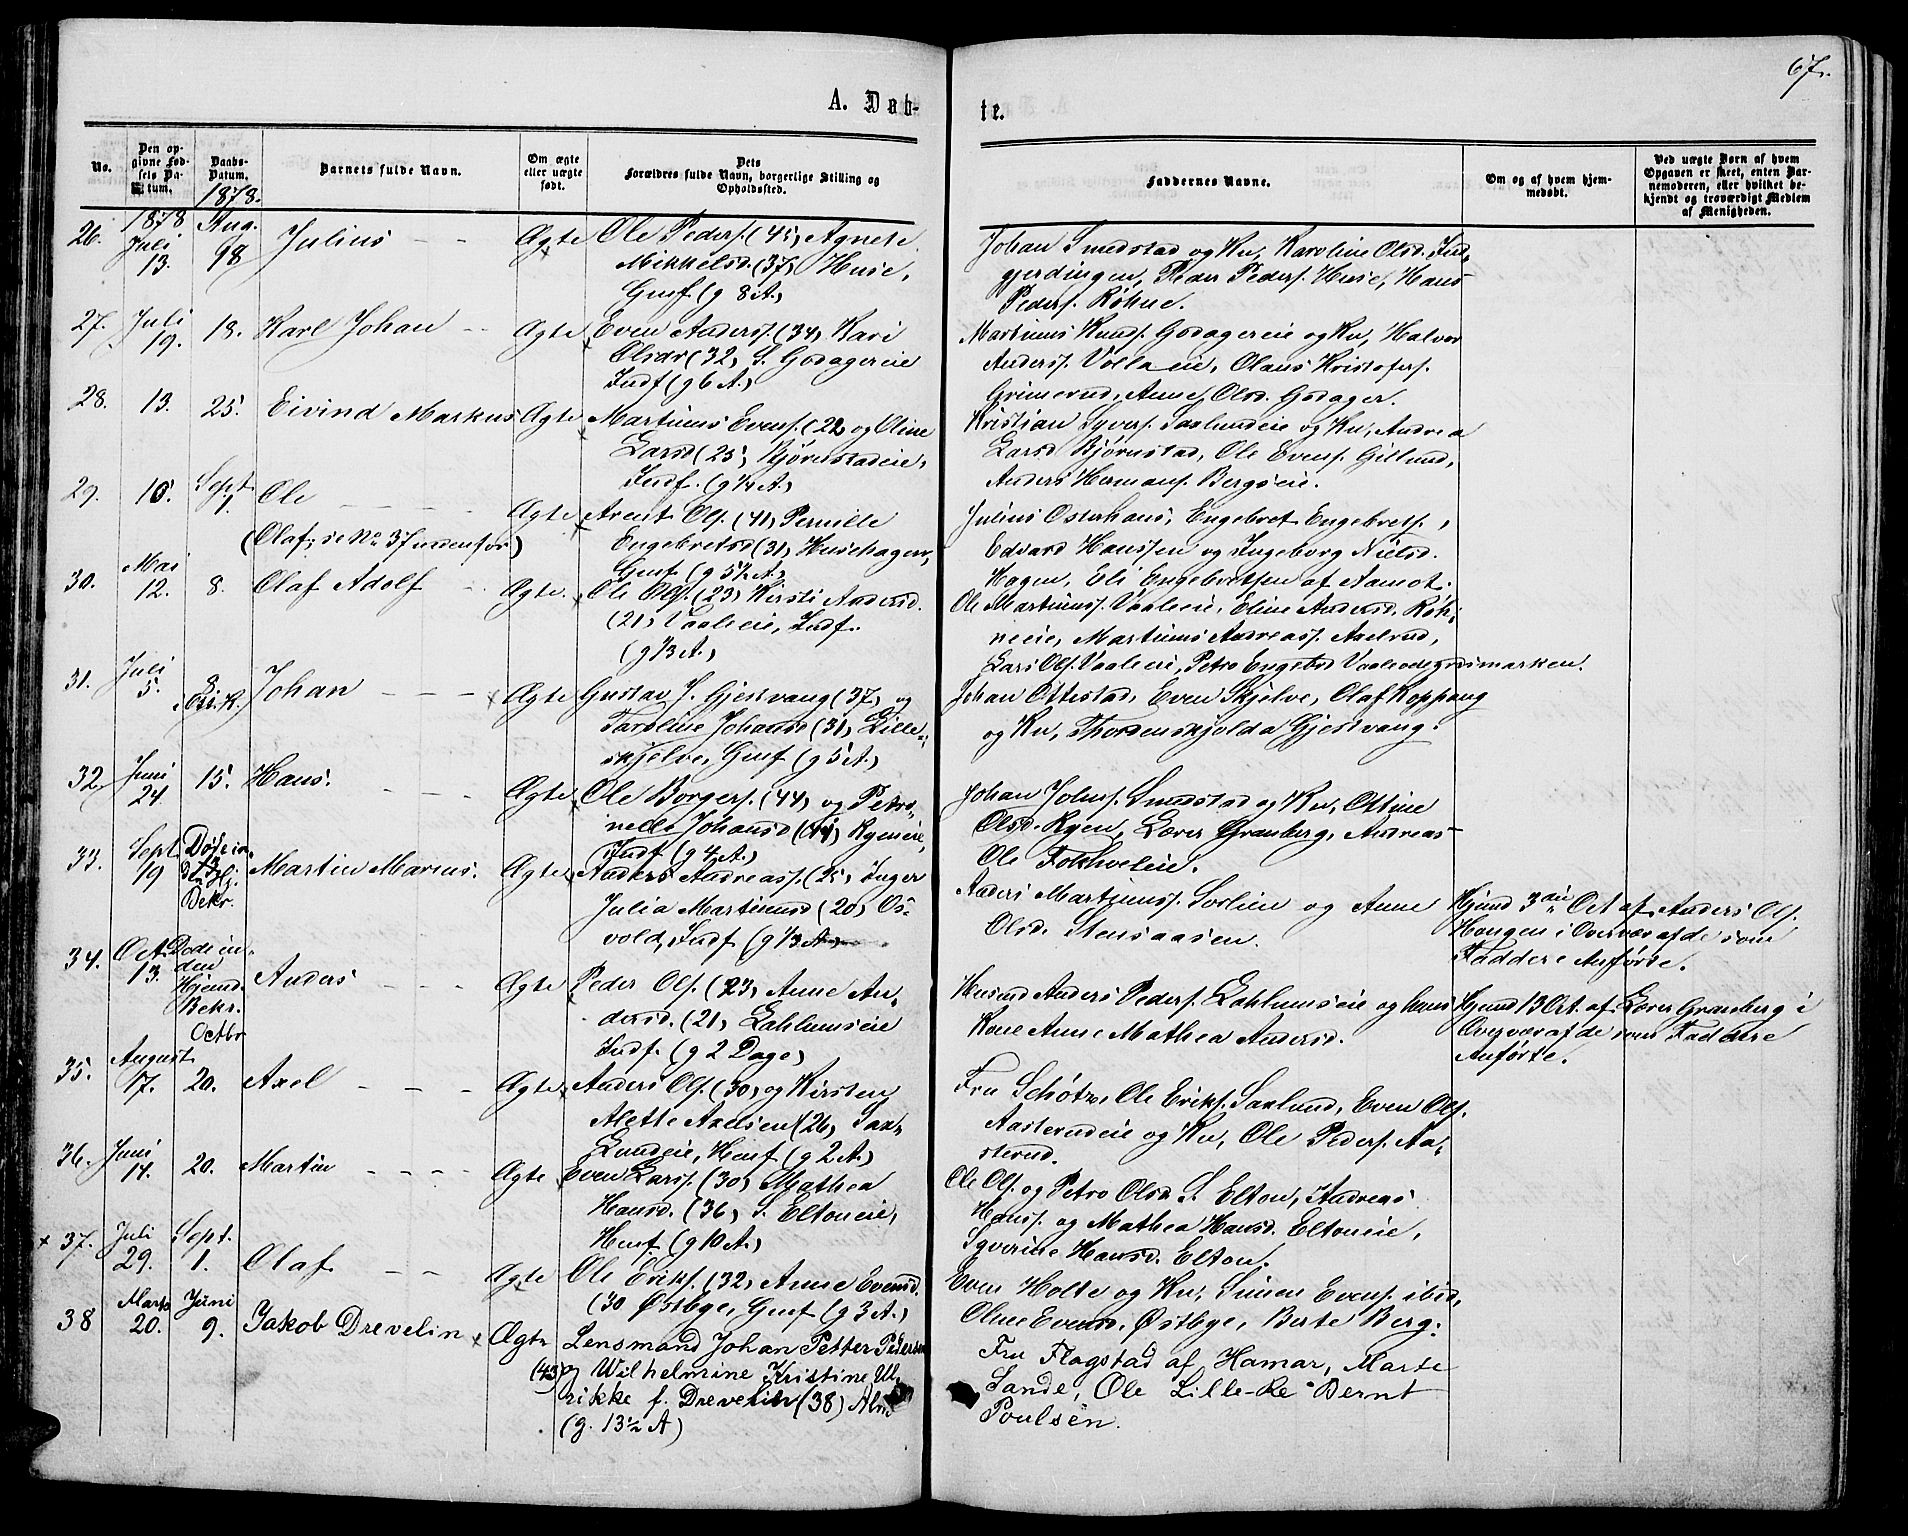 67.
A. Døb-
te.
No.
Den op-
givne Fød-
sels Da-
tum.
Daabs-
Datum.
1878.
Barnets fulde Navn.
Om ægte
eller uægte
født.
Dets
Forældres fulde Navn, borgerlige Stilling og
Opholdssted.
Faddernes Navne.
Om og af hvem hjem-
medøbt.
Ved uægte Børn af hvem
Opgaven er skeet, enten Bar-
nemoderen, eller hvilket be-
kjendt og troværdigt Medlem
af Menigheden.
26. 1878 Juli 13. Aug. Julius - - Ægte Ole Peders. (45) Agnete
Mikkelsd. (37) Huse,
Gusf. (g 8 A.)
Johan Smedstad og Ku, Karoline Olsd. Ind-
gjerdingen, Peder Peders. Huse, Hans
Peders. Røhne.
27. Juli 19. 18. Karl Johan - - Ægte Even Anders. (34) Kari
Olsdr (32) S. Godagereie
Indf (g 6 A.)
Martinus Knuds. Godagereie og Ku, Halvor
Anders. Vollaeie, Olaus Kristofers.
Grimerud, Anne Olsd. Godager.
28. 13. 25. Eivind Markus Ægte Martinus Evens. (22) og Oline
Larsd (25) Bjørnstadeie,
Indf. (g 1/4 A.)
Kristian Syvers. Saxlundeie og Ku, Andrea
Larsd Bjørnstad, Ole Evens. Gillund,
Anders Hermans. Bergseie.
29. 10. Sept. 1. Ole - - - -
(Olaf, se No 37 nedenfor) Ægte Arent Ols. (41) Pernille
Engebretsd (31) Husehagen,
Gusf. (g 5 1/2 A.)
Julius Osterhans, Engebret Engebrets.,
Edvard Hanssen og Ingeborg Nielsd.
Hagen, Eli Engebretsen af Aamot.
30. Mai 12. 8. Olaf Adolf - Ægte Ole Ols. (23) Kirsti Andersd.
(21) Vaaleeie, Indf.
(g 1/3 A.)
Ole Martinuss. Vaaleeie, Eline Andersd. Røh-
neeie, Martinus Andreass. Aaelrud,
Lars Ols. Vaaleeie, Petro Engebd Vaaleødegaardsmarken.
31. Juli 5. 8 Johan - - - Ægte Gustav J. Gjestvang (37) og
Karoline Johansd (31) Lille-
skjelve, Gusf (g 5 A.)
Johan Ottestad, Even Skjelve, Olaf Koppang
og Ku, Thordenskjolda Gjestvang.
32. Juni 24. 15. Hans. - - - Ægte Ole Borgers. (44) og Petro-
nelle Johansd (44) Ryeneie,
Indf (g 4 A.)
Johan Johns. Smedstad og Ku, Ottine
Olsd. Ryen, Lærer Granberg, Andreas
Ole Fokholeie.
33. Sept 19 Døbt in- Bekr. Martin Marius. Ægte Anders Andreass. (25) Inger
Julia Martinusd (20) Os-
vold, Indf (g 1/3 A.)
Anders Martinuss. Sorlien og Anne
Olsd. Stensaasen.
Hjemd 3die Oct af Anders Ols.
Haugen i Overvær af de som
Faddere Anførte.
34. Oct. 13. Døde in-
den
Hjemd.
Bekr. Anders - - - Ægte Peder Ols. (23) Anne An-
dersd. (21) Lahlumseie
Indf. (g 2 Dage)
Husmd Anders Peders. Lahlumseie og hans
Kone Anne Mathea Andersd.
Hjemd 13 Oct. af Lærer Granberg i
Overvær af de som Faddere
Anførte.
35. August 17. Octbr 20. Axel - - - Ægte Anders Ols. (30) og Kirsten
Alette Axelsen (26) Sax-
lundeie, Husf (g 2 A.)
Fru Schøtz, Ole Eriks. Saxlund, Even Ols.
Aasterudeie og Ku, Ole Peders. Aa-
sterud.
36. Juni 14. 20. Martin - - - - Ægte Even Lars. (30) Mathea
Hansd. (36) S. Eltoneie,
Husf. (g 10 A.)
Ole Ols. og Petro Olsd. S. Elton, Andreas
Hans. og Mathea Hansd. Eltoneie,
Syverine Hansd. Elton.
x 37. Juli 29. Sept. 1. Olaf - - - Ægte Ole Eriks. (32) Anne Evensd.
(30 Østbye, Gusf (g 3 A.)
Even Holte og Ku, Simen Evens. ibid,
Oline Evensd. Østbye, Berte Berg.
38 Marts 20. Juni 9. Jakob Drevelin x Ægte Lensmand Johan Petter Pedersen
(43) og Wilhelmine Kristine Ul-
rikke f. Drevelin (38)
(g. 13 1/2 A)
Fru Flagstad af Hamar, Marte
Sande, Ole Lille-Re Bernt
Poulsen.